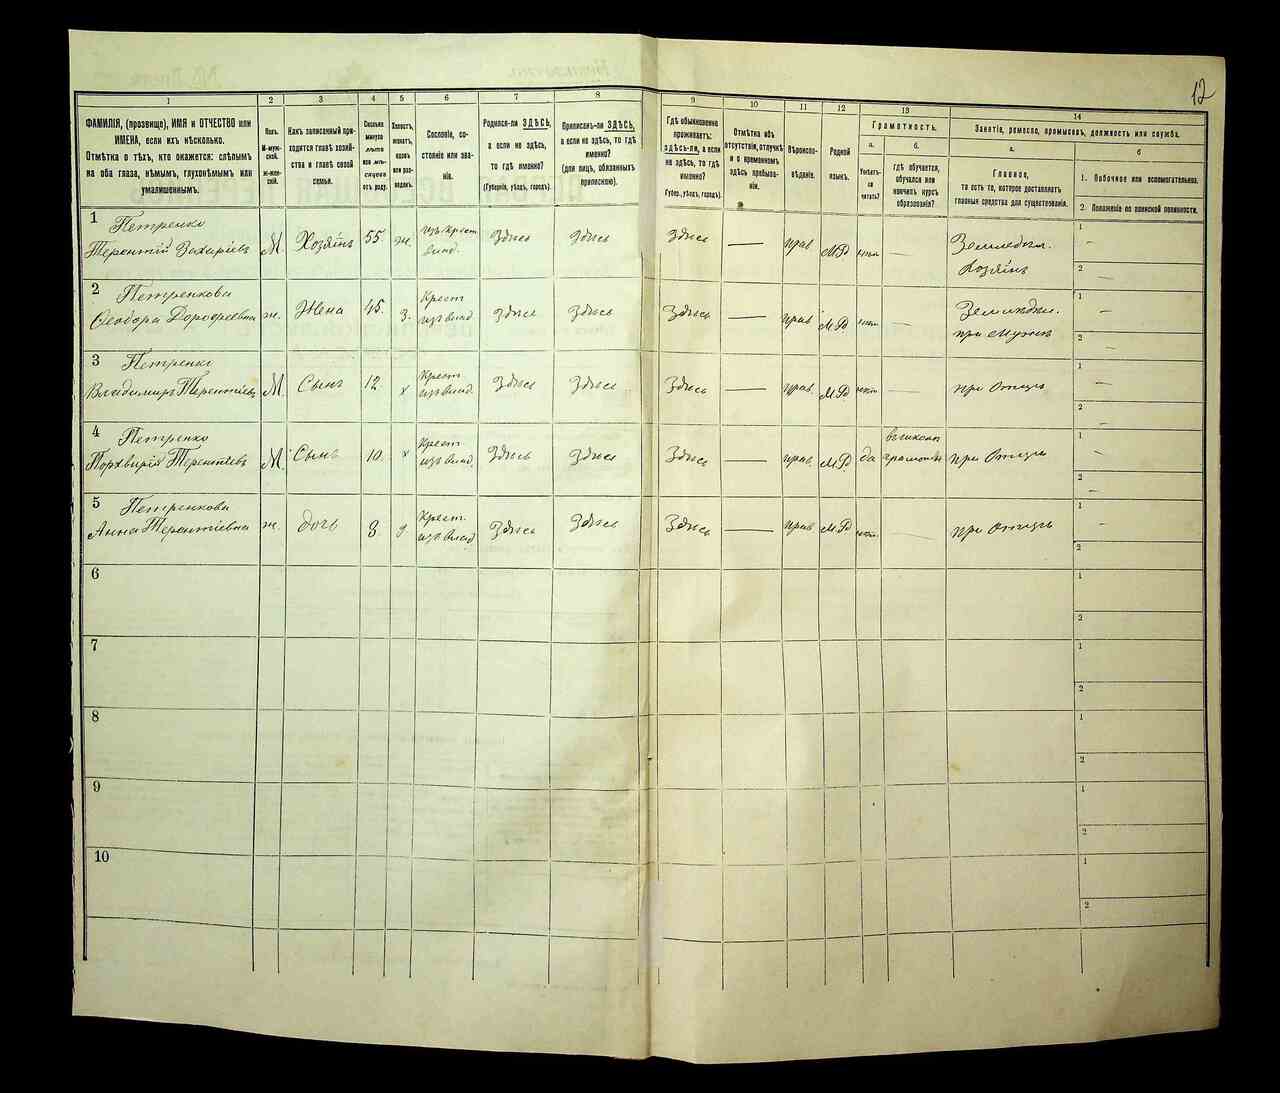 12
1
2
3
4
5
6
7
8
9
10
11
12
13
14
ФАМИЛІЯ, (прозвище), ИМЯ и ОТЧЕСТВО или
ИМЕНА, если ихъ нѣсколько.
Отмѣтка о тѣхъ, кто окажется: слѣпымъ
на оба глаза, нѣмымъ, глухонѣмымъ или
умалишеннымъ.
Полъ.
М-муж-
ской.
Ж-жен-
скій.
Какъ записанный при-
ходится главѣ хозяй-
ства и главѣ своей
семьи.
Сколько
минуло
лѣтъ
или мѣ-
сяцевъ
отъ роду.
Холостъ,
женатъ,
вдовъ
или раз-
веденъ.
Сословіе, со-
стояніе или зва-
ніе.
Родился-ли ЗДѢСЬ,
а если не здѣсь,
то гдѣ именно?
(Губернія, уѣздъ, городъ).
Приписанъ-ли ЗДѢСЬ,
а если не здѣсь, то гдѣ
именно?
(для лицъ, обязанныхъ
припискою).
Гдѣ обыкновенно
проживаетъ:
здѣсь-ли, а если
не здѣсь, то гдѣ
именно?
Губер., уѣздъ, городъ).
Отмѣтка объ
отсутствіи, отлучкѣ
и о временномъ
здѣсь пребыва-
ніи.
Вѣроиспо-
вѣданіе.
Родной
языкъ.
Грамотность.
а.
Умѣетъ-
ли
читать?
б.
гдѣ обучается,
обучался или
кончилъ курсъ
образованія?
Занятіе, ремесло, промыселъ, должность или служба.
а.
Главное,
то есть то, которое доставляетъ
главныя средства для существованія.
б
1. Побочное или вспомогательное.
2. Положеніе по воинской повинности.
1 Петренко
Терентій Захаріевъ М. Хозяинъ 55 ж. изъ Крест. влад. Здѣсь Здѣсь Здѣсь — прав М.Р. Земледѣл. Хозяинъ 1 — 2 —
2 Петренкова
Ѳеодора Дорофеевна ж. Жена 45. з. Крест изъ влад Здѣсь Здѣсь Здѣсь — прав М.Р — Земледѣл. при мужѣ 1 — 2 —
3 Петренко
Владимиръ Терентіевъ М. Сынъ 12. х Крест. изъ влад. Здѣсь Здѣсь Здѣсь — прав. М.Р — при Отцѣ 1 — 2 —
4 Петренко
Порхвирій Терентіевъ М. Сынъ 10. х Крест. изъ влад. Здѣсь Здѣсь Здѣсь — прав. М.Р. да при Отцѣ 1 — 2 —
5 Петренкова
Анна Терентіевна ж. дочь 8. д Крест. изъ влад Здѣсь Здѣсь Здѣсь — прав М.Р — при Отцѣ 1 — 2
6 1 2
7 1 2
8 1 2
9 1 2
10 1 2